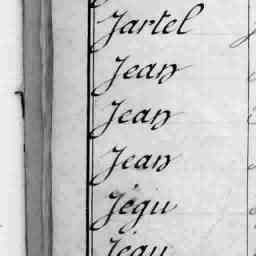 Jartel
Jean
Jean
Jean
Jégu
Jégu